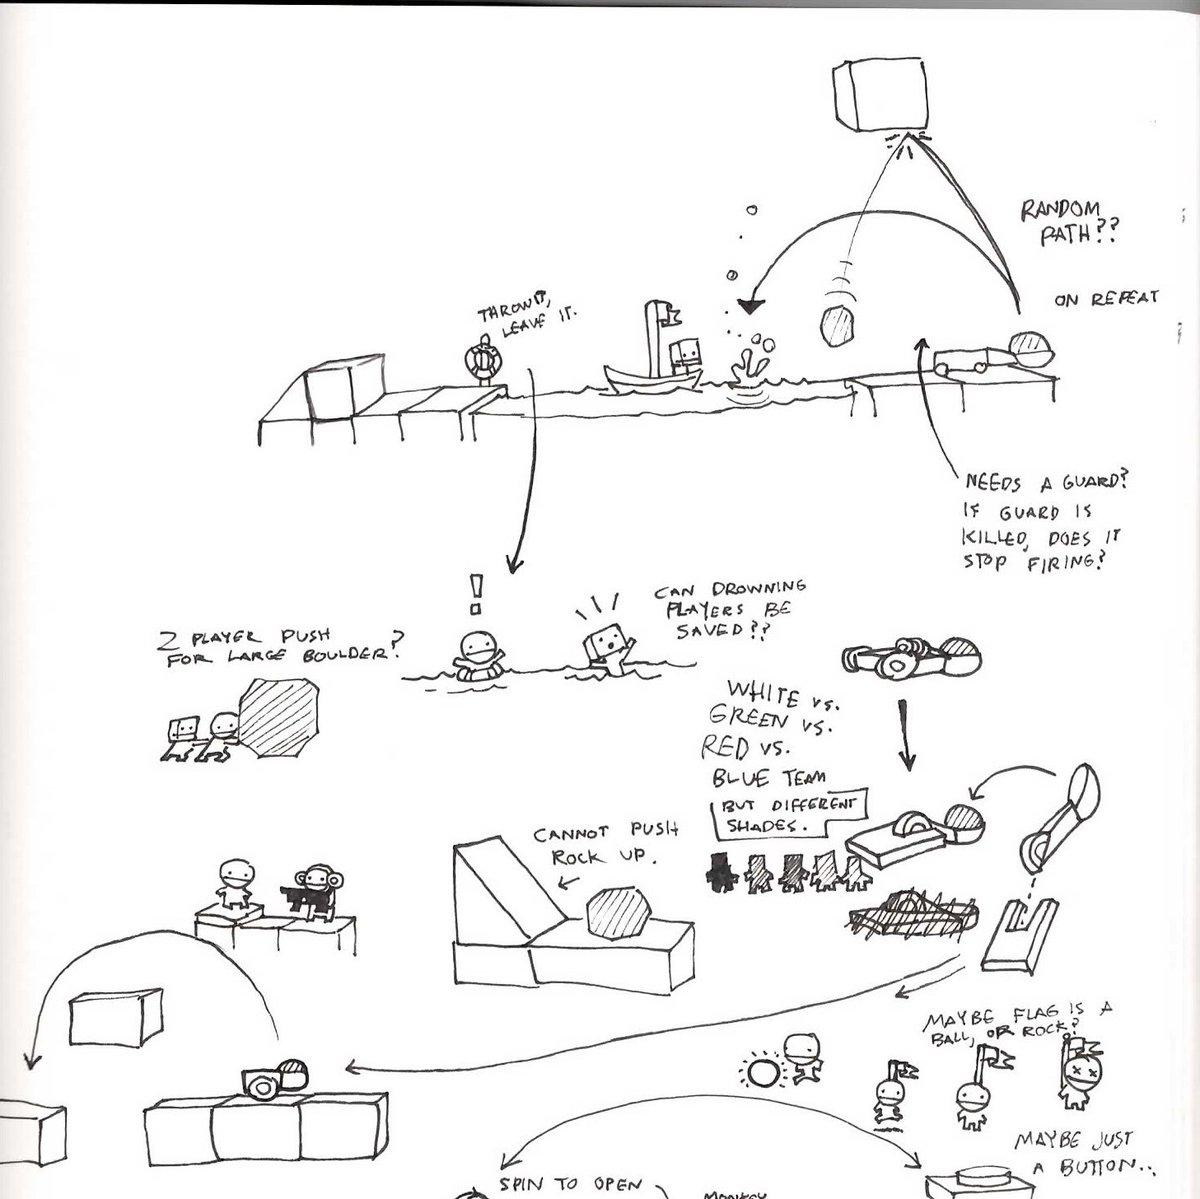 RANDOM
PATH??
ON REPEAT
THROW IT,
LEAVE IT.
NEEDS A GUARD?
IF GUARD IS
KILLED, DOES IT
STOP FIRING?
!
CAN DROWNING
PLAYERS BE
SAVED??
2 PLAYER PUSH
FOR LARGE BOULDER?
WHITE vs.
GREEN vs.
RED vs.
BLUE TEAM
BUT DIFFERENT
SHADES.
CANNOT PUSH
ROCK UP.
MAYBE FLAG IS A
BALL, OR ROCK?
MAYBE JUST
A BUTTON..
SPIN TO OPEN
MONKEY